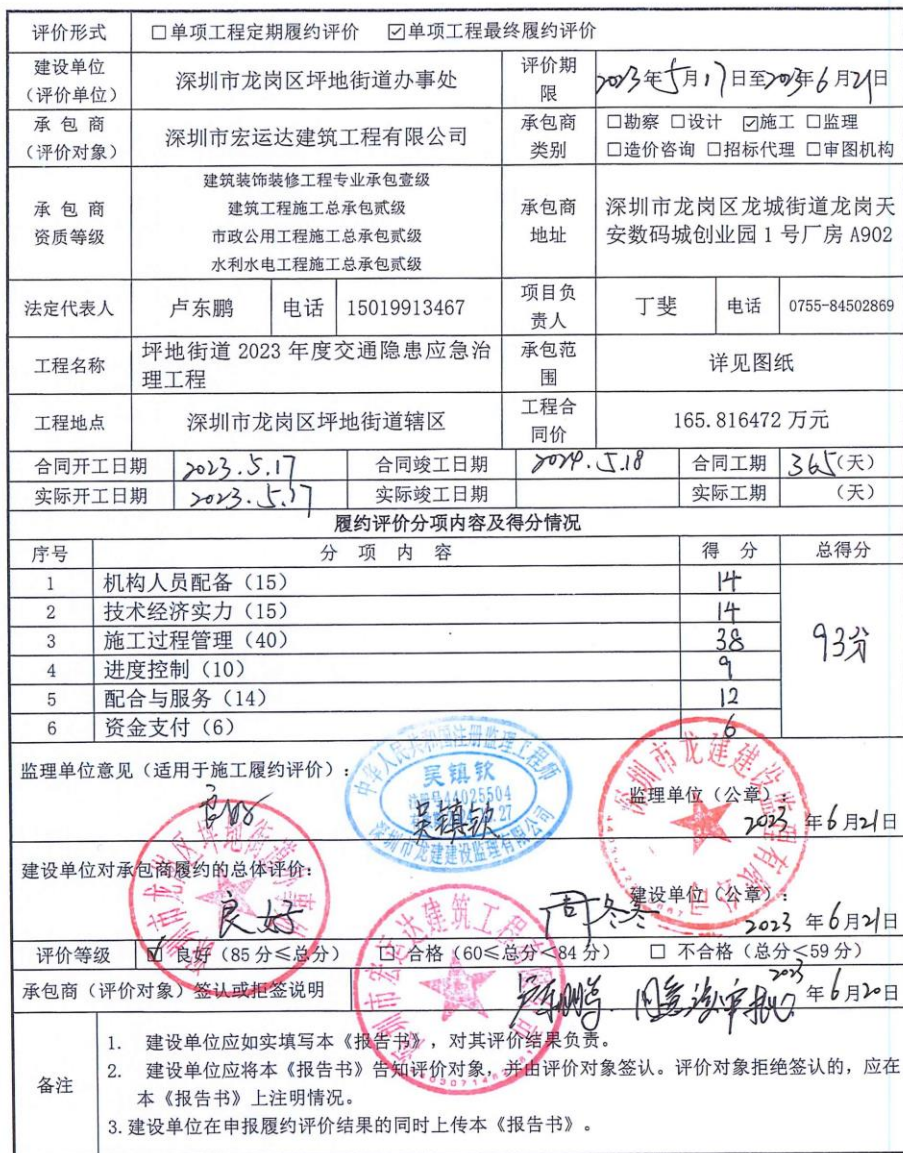 评价形式 □单项工程定期履约评价 ☑单项工程最终履约评价
建设单位（评价单位） 深圳市龙岗区坪地街道办事处 评价期限 2023年5月17日至2023年6月21日
承包商（评价对象） 深圳市宏运达建筑工程有限公司 承包商类别 □勘察 □设计 ☑施工 □监理
□造价咨询 □招标代理 □审图机构
承包商资质等级 建筑装饰装修工程专业承包壹级
建筑工程施工总承包贰级
市政公用工程施工总承包贰级
水利水电工程施工总承包贰级
承包商地址 深圳市龙岗区龙城街道龙岗天
安数码城创业园1号厂房A902
法定代表人 卢东鹏 电话 15019913467 项目负责人 丁斐 电话 0755-84502869
工程名称 坪地街道2023年度交通隐患应急治
理工程 承包范围 详见图纸
工程地点 深圳市龙岗区坪地街道辖区 工程合同价 165.816472万元
合同开工日期 2023.5.17 合同竣工日期 2024.5.18 合同工期 365(天)
实际开工日期 2023.5.17 实际竣工日期 实际工期 （天）
履约评价分项内容及得分情况
序号 分项内容 得分 总得分
1 机构人员配备（15） 14
2 技术经济实力（15） 14
3 施工过程管理（40） 38 93分
4 进度控制（10） 9
5 配合与服务（14） 12
6 资金支付（6） 6
监理单位意见（适用于施工履约评价）：
良好
中华人民共和国注册监理工程师
吴镇钦
注册号44025504
深圳市龙建建设监理有限公司
吴镇钦
监理单位（公章）：
2023年6月21日
深圳市龙建建设监理有限公司
建设单位对承包商履约的总体评价：
良好
建设单位（公章）：
2023年6月21日
评价等级 ☑ 良好（85分≤总分） □ 合格（60≤总分<84分） □ 不合格（总分<59分）
承包商（评价对象）签认或拒签说明 卢东鹏. 2023年6月20日
备注
1. 建设单位应如实填写本《报告书》，对其评价结果负责。
2. 建设单位应将本《报告书》告知评价对象，并由评价对象签认。评价对象拒绝签认的，应在
本《报告书》上注明情况。
3.建设单位在申报履约评价结果的同时上传本《报告书》。